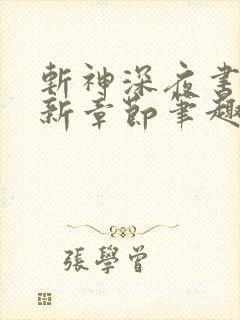 斬神深夜書
新章節筆趣
張學曾